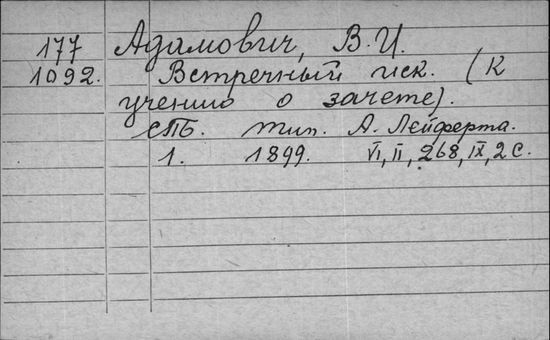 177 Адамович, В.И.
1092. Встречный иск. (К
учению о зачете).
СПБ. Тип. А. Лейферта.
1. 1899. VI, II, 268, IX, 2 с.